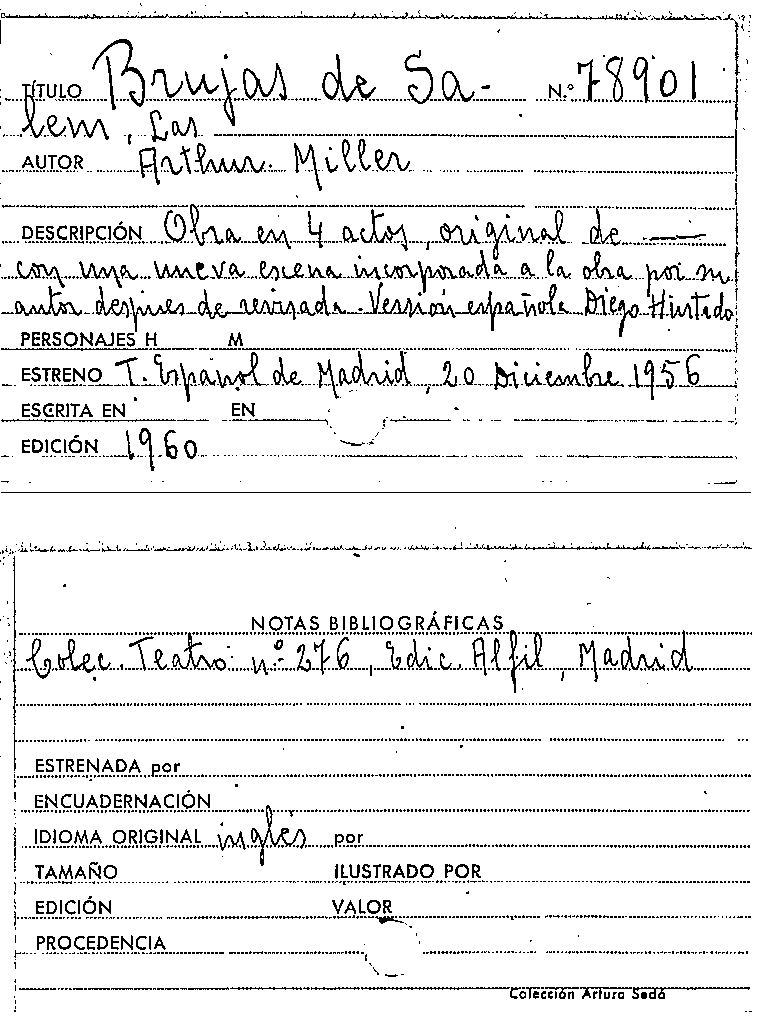 TÍTULO Brujas de Sa- N.º 78901
lem, Las
AUTOR Arthur Miller
DESCRIPCIÓN Obra en 4 actos, original de —
con una nueva escena incorporada a la obra por su
autor despues de revisada. Versión española Diego Hurtado
PERSONAJES H M
ESTRENO T. Español de Madrid, 20 Diciembre 1956
ESCRITA EN EN
EDICIÓN 1960
NOTAS BIBLIOGRÁFICAS
Colec. Teatro nº 276, Edic. Alfil, Madrid
ESTRENADA por
ENCUADERNACIÓN
IDIOMA ORIGINAL inglés por
TAMAÑO ILUSTRADO POR
EDICIÓN VALOR
PROCEDENCIA
Colección Arturo Sedó